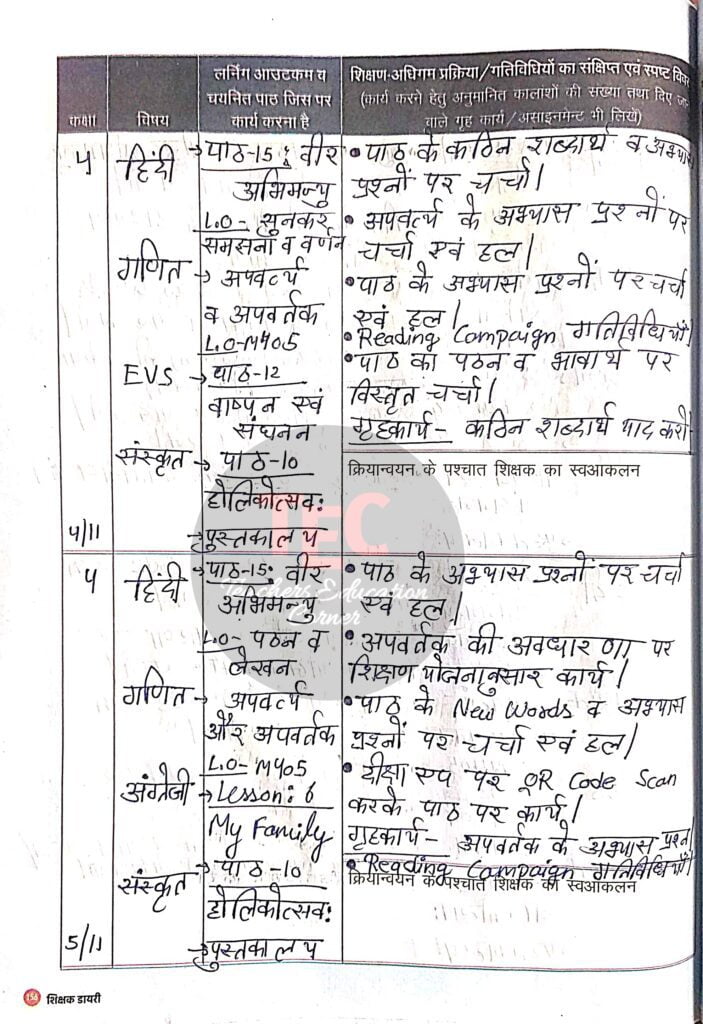 कक्षा
विषय
लर्निंग आउटकम व
चयनित पाठ जिस पर
कार्य करना है
शिक्षण-अधिगम प्रक्रिया/गतिविधियों का संक्षिप्त एवं स्पष्ट
(कार्य करने हेतु अनुमानित कालांशों की संख्या तथा दिए
वाले गृह कार्य/असाइनमेंट भी लिखें)
4
हिंदी
→पाठ-15: वीर
अभिमन्यु
L.O- सुनकर
समझना व वर्णन
• पाठ के कठिन शब्दार्थ व अभ्यास
प्रश्नों पर चर्चा।
गणित
→ अपवर्त्य
व अपवर्तक
L.O-M405
• अपवर्त्य के अभ्यास प्रश्नों पर
चर्चा एवं हल।
EVS
→ पाठ-12
वाष्पन एवं
संघनन
• पाठ के अभ्यास प्रश्नों पर चर्चा
एवं हल।
• Reading Campaign गतिविधियाँ।
संस्कृत
→ पाठ-10
होलिकोत्सव:
→पुस्तकालय
• पाठ का पठन व भावार्थ पर
विस्तृत चर्चा।
गृहकार्य- कठिन शब्दार्थ याद करो
क्रियान्वयन के पश्चात शिक्षक का स्वआकलन
4/11
TEC
Teachers Education
Corner
4
हिंदी
→पाठ-15: वीर
अभिमन्यु
L.O- पठन व
लेखन
• पाठ के अभ्यास प्रश्नों पर चर्चा
एवं हल।
गणित
→ अपवर्त्य
और अपवर्तक
L.O-M405
• अपवर्तक की अवधारणा पर
शिक्षण योजनानुसार कार्य।
अंग्रेजी
→Lesson: 6
My Family
• पाठ के New Words व अभ्यास
प्रश्नों पर चर्चा एवं हल।
संस्कृत
→ पाठ-10
होलिकोत्सव:
→पुस्तकालय
• दीक्षा एप पर QR Code Scan
करके पाठ पर कार्य।
गृहकार्य- अपवर्तक के अभ्यास प्रश्न।
• Reading Campaign गतिविधियाँ।
क्रियान्वयन के पश्चात शिक्षक का स्वआकलन
5/11
156 शिक्षक डायरी